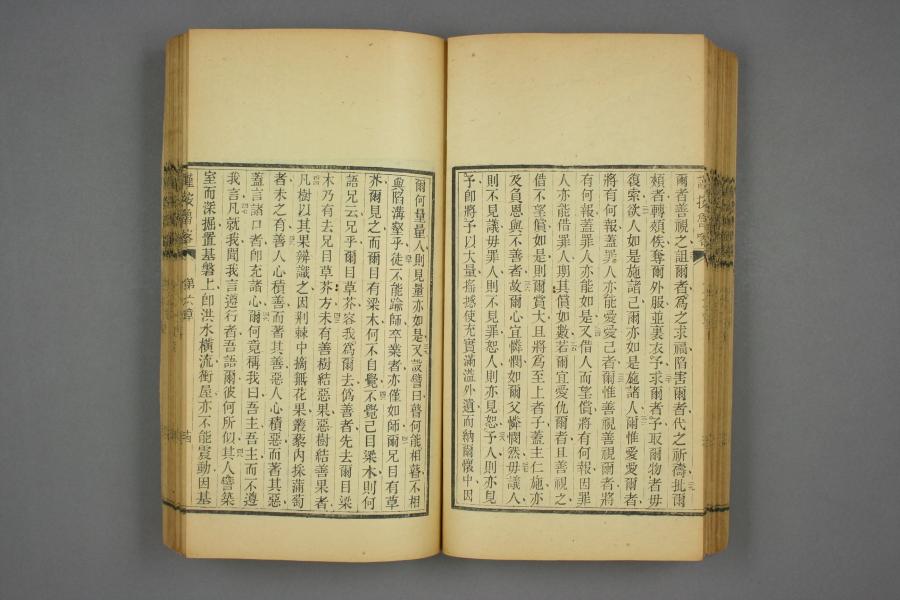 爾者善視之詛爾者爲之求福陷害爾者代之祈禱批爾
頰者轉頰俟奪爾外服並裏衣予求爾者予取爾物者毋
復索欲人如是施諸己爾亦如是施諸人爾惟愛愛爾者
將有何報蓋罪人亦能愛愛己者爾惟善視善視爾者將
有何報蓋罪人亦能如是又借人而望償將有何報因罪
人亦能借罪人期其償如數若爾宜愛仇爾者且善視之
借不望償如是則爾賞大且將爲至上者子蓋主仁施亦
及負恩與不善者故爾心宜憐憫如爾父憐憫然毋議人
則不見議毋罪人則不見罪恕人則亦見恕予人則亦見
予卽將予以大量搖撼使充實滿溢外遺而納爾懷中因
爾何量量人則見量亦如是又設譬曰瞽何能相瞽不相
與陷溝壑乎徒不能踰師卒業者亦僅如師爾兄目有草
芥爾見之而爾目有梁木何不自覺不覺己目梁木則何
語兄云兄乎爾目草芥容我爲爾去僞善者先去爾目梁
木乃有去兄目草芥方未有善樹結惡果惡樹結善果者
凡樹以其果辨識之因荆棘中摘無花果叢藜內採蒲萄
者未之有善人心積善而著其善惡人心積惡而著其惡
蓋言諸口者卽充諸心爾何竟稱我曰吾主吾主而不遵
我言凡就我聞我言遵行者吾語爾彼何所似其人譬築
室而深掘置基磐上卽洪水橫流衝屋亦不能震動因基
第六章